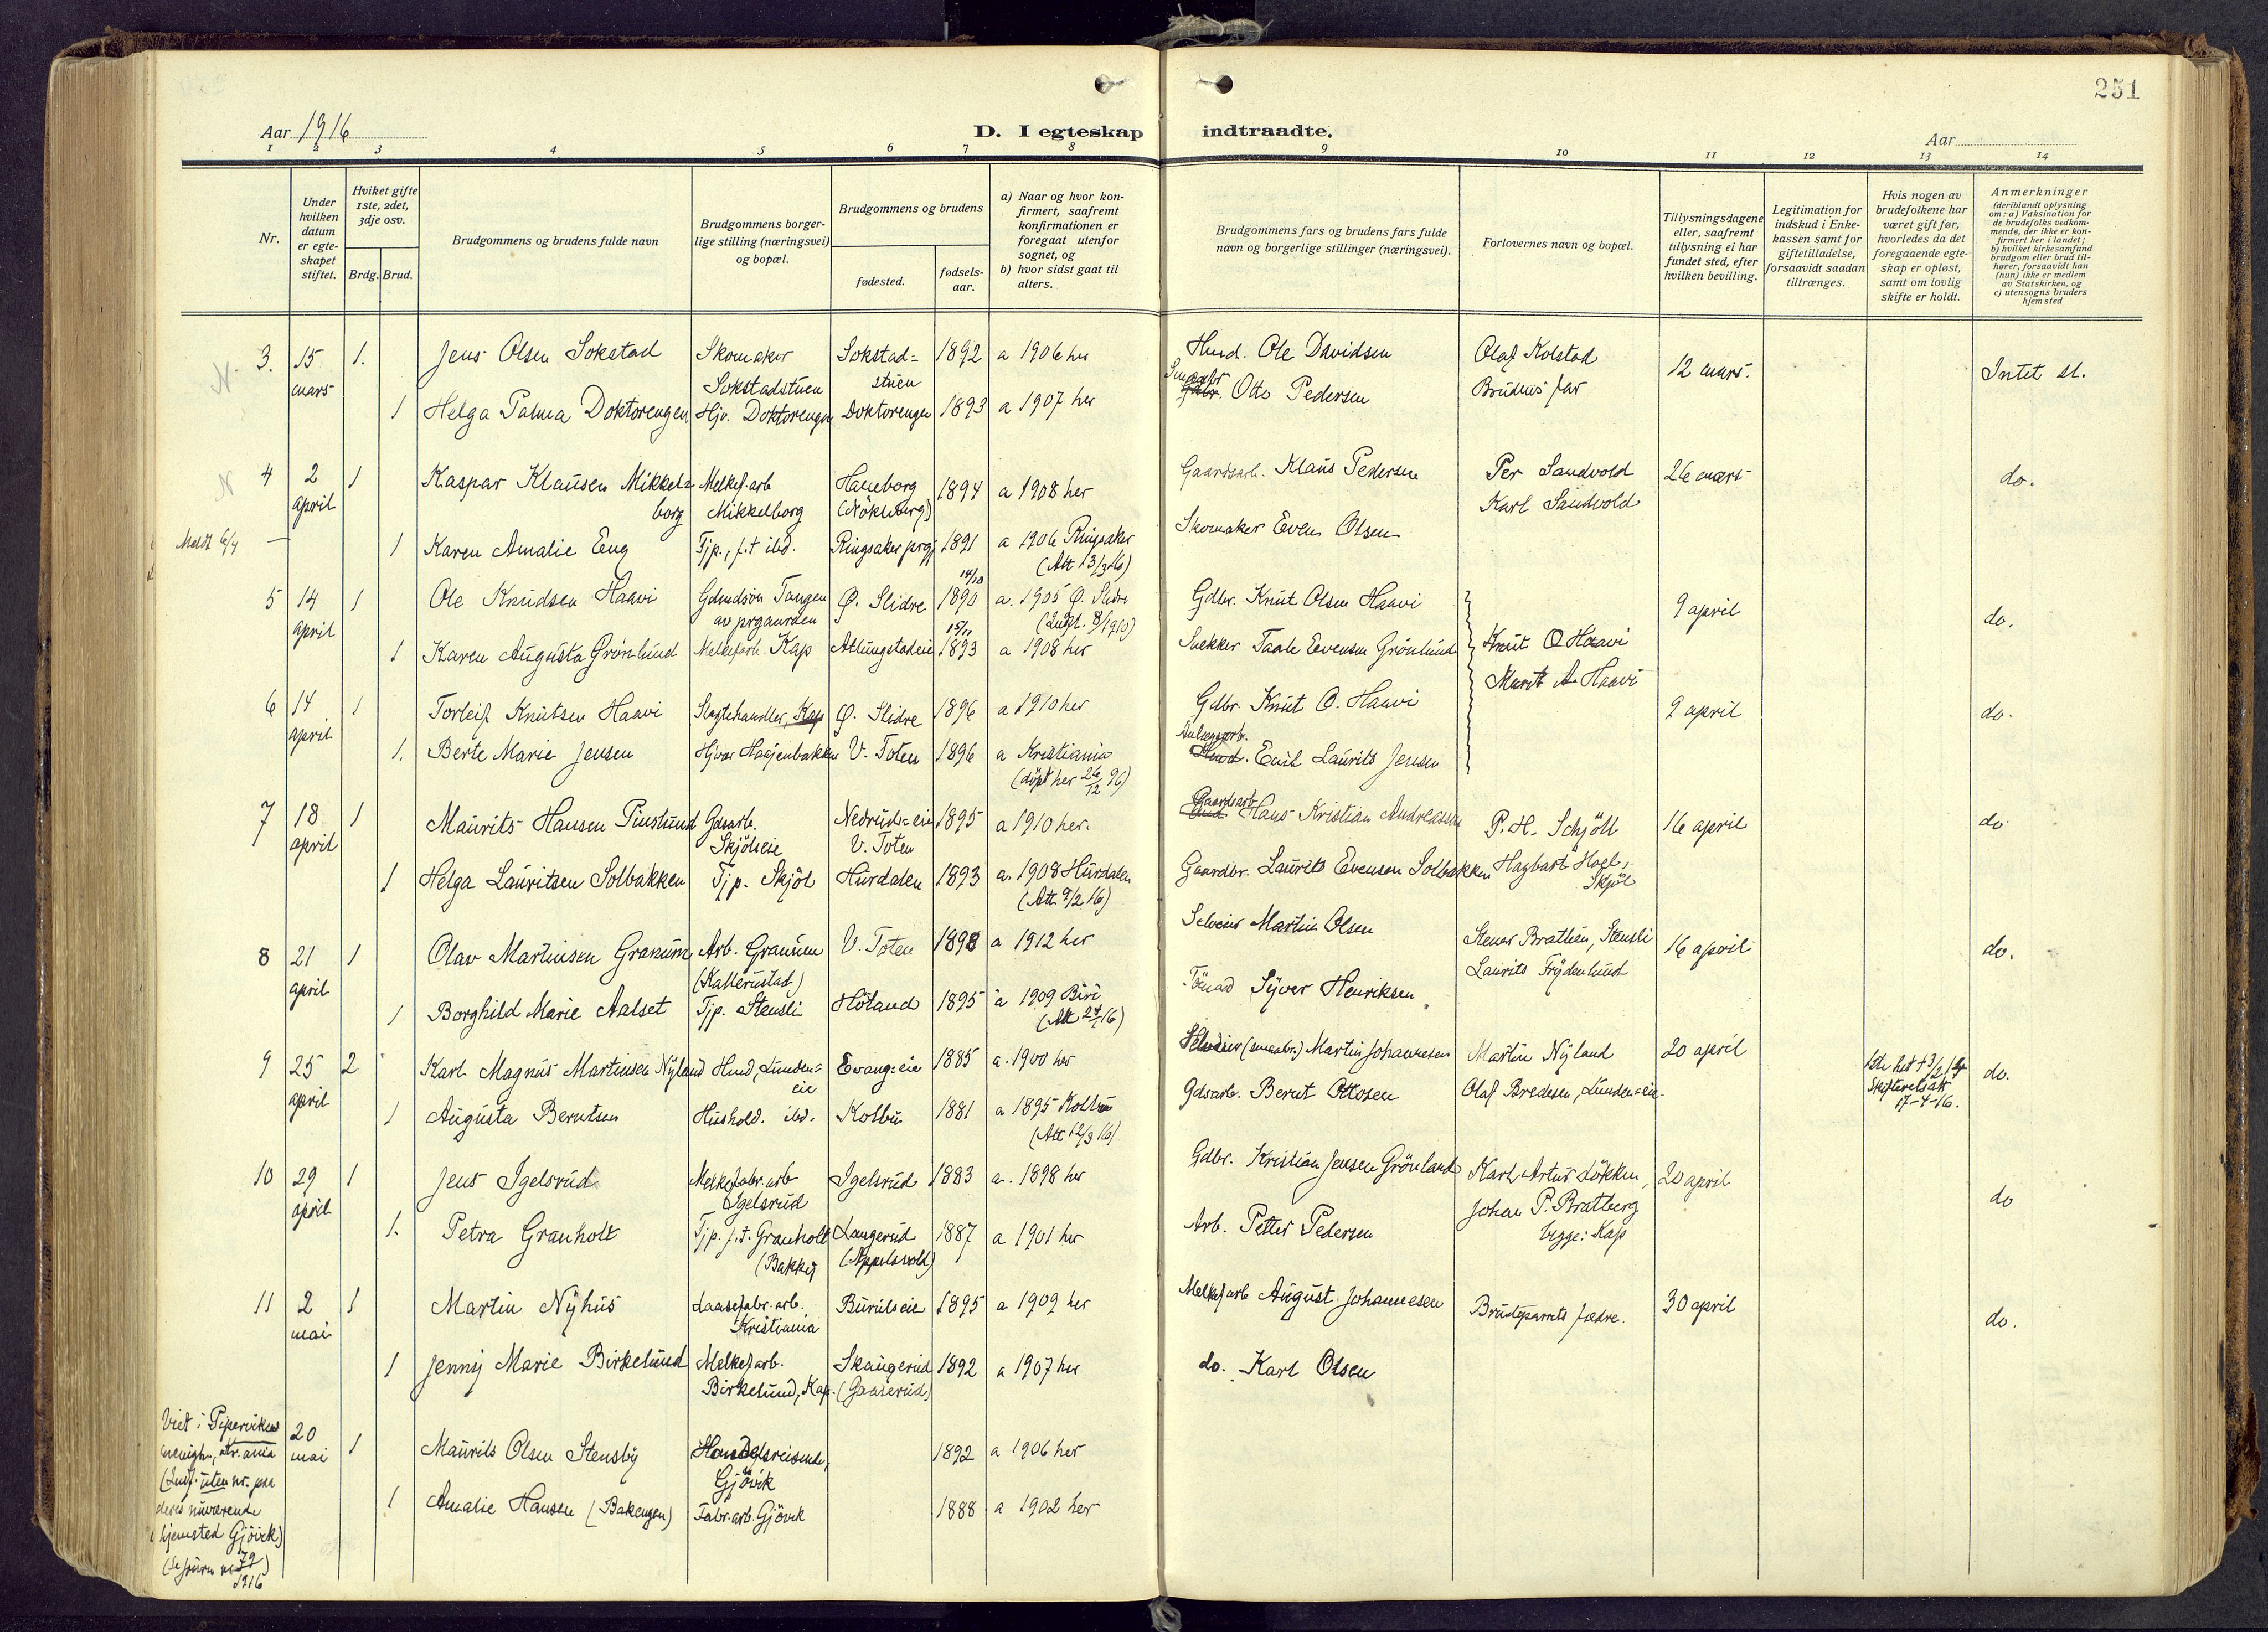 251
Aar 1916
D. I egteskap indtraadte.
Aar
1 2 3 4 5 6 7 8 9 10 11 12 13 14
Nr.
Under hvilken datum er egteskapet stiftet.
Hvilket gifte 1ste, 2det, 3dje osv.
Brdg. Brud.
Brudgommens og brudens fulde navn
Brudgommens borgerlige stilling (næringsvei) og bopæl.
Brudgommens og brudens
fødested.
fødselsaar.
a) Naar og hvor konfirmert, saafremt konfirmationen er foregaat utenfor sognet, og
b) hvor sidst gaat til alters.
Brudgommens fars og brudens fars fulde navn og borgerlige stillinger (næringsvei).
Forlovernes navn og bopæl.
Tillysningsdagene eller, saafremt tillysning ei har fundet sted, efter hvilken bevilling.
Legitimation for indskud i Enkekassen samt for giftetilladelse, forsaavidt saadan tiltrænges.
Hvis nogen av brudefolkene har været gift før, hvorledes da det foregaaende egteskap er opløst, samt om lovlig skifte er holdt.
Anmerkninger (deriblandt oplysning om: a) Vaksination for de brudefolks vedkommende, der ikke er konfirmert her i landet; b) hvilket kirkesamfund brudgom eller brud tilhører, forsaavidt han (hun) ikke er medlem av Statskirken, og c) utensogns bruders hjemsted
3. 15 mars 1. Jens Olsen Sokstad Skomaker Sokstadstuen Sokstad=stuen 1892 a 1906 her Husd. Ole Davidsen Olaf Kolstad 12 mars. Intet sl.
1 Helga Palma Doktorengen Hjv. Doktorengen Doktorengen 1893 a 1907 her Otto Pedersen Brudens far
4 2 april 1 Kaspar Klausen Mikkelborg Melkef.arb Mikkelborg 1894 a 1908 her Gaardsarb. Klaus Pedersen Per Sandvold 26 mars do.
Karl Sandvold
Meldt 6/4
1 Karen Amalie Eng Tjp., f.t ibd. Ringsaker prgj 1891 a 1906 Ringsaker (Att 13/3 16) Skomaker Even Olsen
5 14 april 1 Ole Knudsen Haavi Tangen av prgaarden Ø. Slidre 14/10 1890 a. 1905 Ø. Slidre Gdbr. Knut Olsen Haavi 9 april do.
1 Karen Augusta Grønlund Melkefarb. Kap 15/11 1893 a 1908 her Snekker Evensen Grönlund Knut O Haavi
Marit A. Haavi
6 14 april 1 Torleif Knutsen Haavi Slagtehandler, Kap Ø. Slidre 1896 a 1910 her Gdbr. Knut O. Haavi 9 april do.
1. Berte Marie Jensen V. Toten 1896 a Kristiania (döpt her 26/12 96) Emil Laurits Jensen
7 18 april 1 Maurits Hansen Gdsarb. Skjölseie Nedrud=eie V. Toten 1895 a 1910 her. Gaardsarb. Hans Kristian Andreassen P. H. Schjöll 16 april do
1 Helga Lauritsen Solbakken Tjp. Skjöl Hurdalen 1893 a. 1908 Hurdalen (Att 9/2 16) Gaardbr. Laurits Evensen Solbakken Hagbart Skjöl
8 21 april 1 Olav Martinsen Granum Arb. Granum V. Toten 1898 a 1912 her Selveier Martin Olsen Stener Brathen, Stensli 16 april do.
Laurits Frydenlund
1 Borghild Marie Aalset Tjp. Stensli 1895 a 1909 Biri Syver Henriksen
9 25 april 2 Karl Magnus Martinsen Nyland Husd, Lunden=eie Evang=eie 1885 a. 1900 her Martin Johannesen Martin Nyland 20 april do.
17-4-16.
1 Augusta Berntsen Hushold. ibd. Kolbu 1881 a 1895 Kolbu (Att 12/3 16) Gdsarb. Bernt Ottosen Olaf Bredesen, Lunden=eie
10 29 april 1 Jens Igelsrud Melkefabr.arb Igelsrud Igelsrud 1883 a. 1898 her Gdbr. Kristian Jensen Grönland Karl Artur Lökken, 20 april do
Johan P. Bratberg
begge: Kap
1. Petra Granholt Tjp. f.t. Granholt Langerud (Appelsvold) 1887 a 1901 her Arb. Petter Pedersen
11 2 mai 1 Martin Nyhus Laasefabr.arb. Kristiania 1895 a 1909 her Melkefarb August Johannesen Brudeparrets fædre. 30 april do.
1 Jenny Marie Birkelund Melkefarb. Birkelund, Kap. Skaugerud (Gaaserud) 1892 a 1907 her do. Karl Olsen
Viet i Pipervikens
(Indf. uten nr. paa
deres nuværende
hjemsted Gjövik)
20 mai 1 Maurits Olsen Stensby Handelsreisende, Gjövik 1892 a 1906 her
1 Amalie Hansen (Bakengen) Fabr.arb. Gjövik 1888 a 1902 her